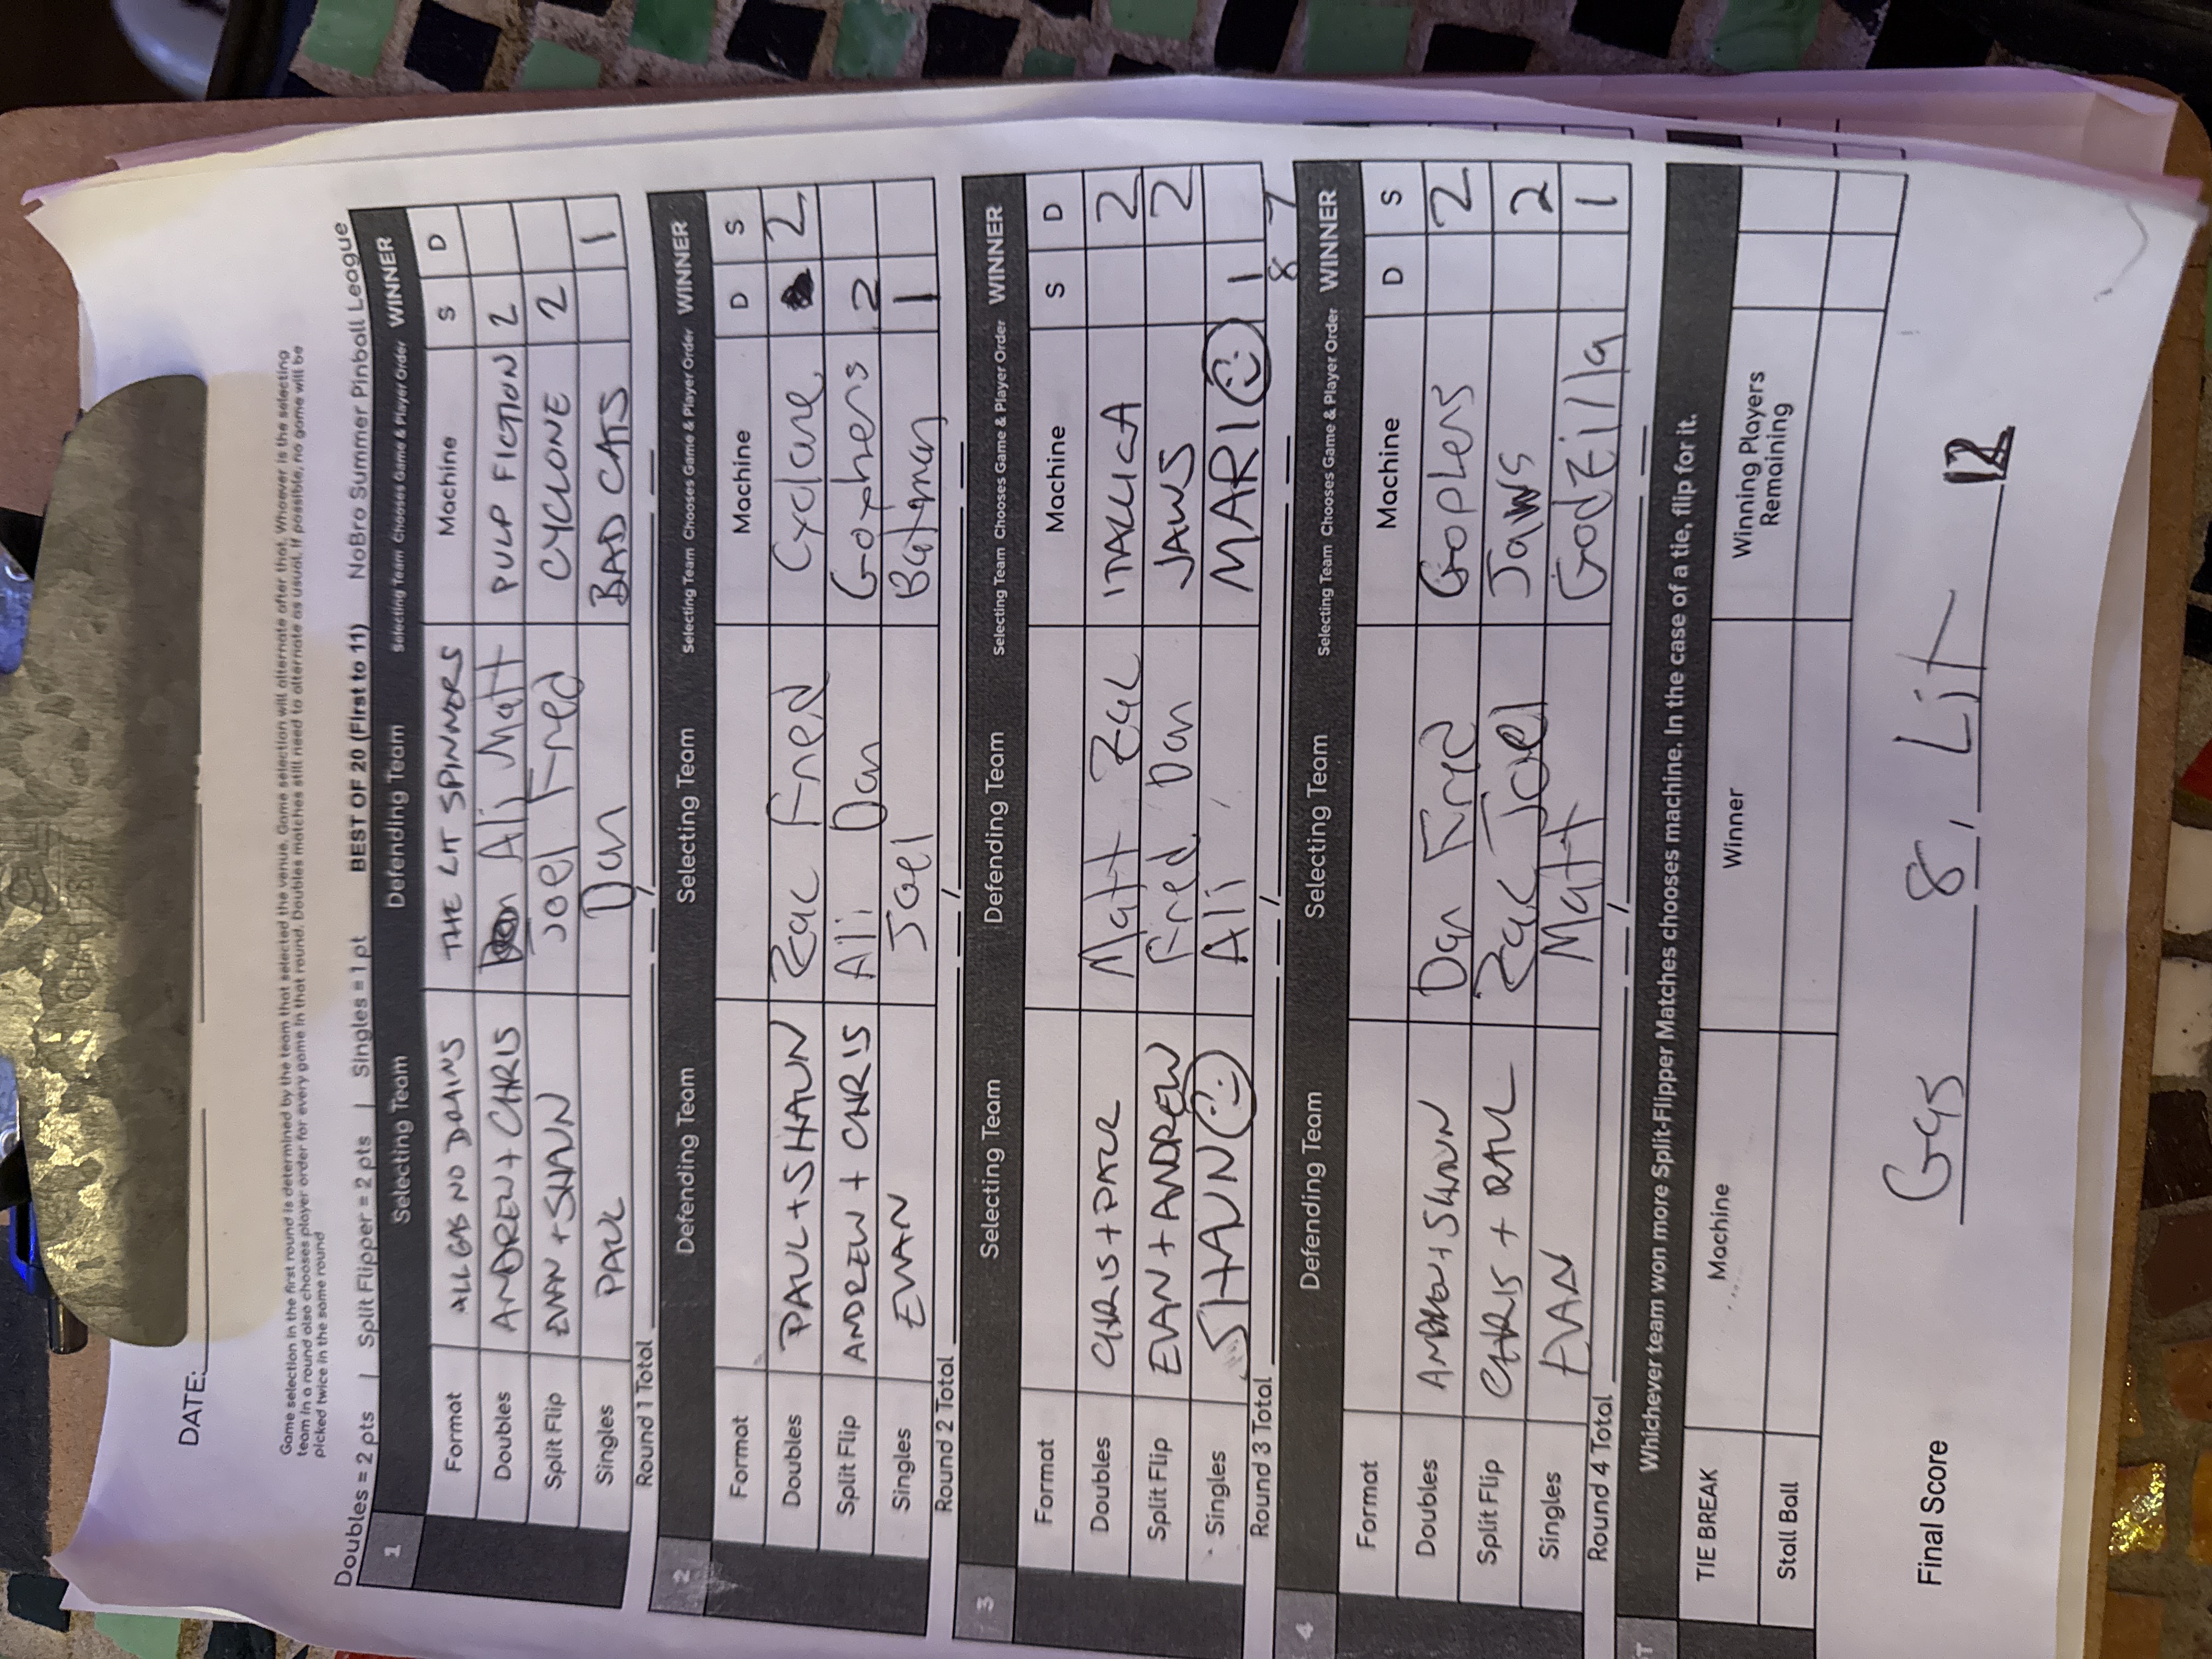 DATE:
Game selection in the first round is determined by the team that selected the venue. Game selection will alternate after that. Whoever is the selecting
team in a round also chooses player order for every game in that round. Doubles matches still need to alternate as usual. If possible, no game will be
picked twice in the same round
Doubles = 2 pts | Split Flipper = 2 pts | Singles = 1 pt BEST OF 20 (First to 11) NoBro Summer Pinball League
1 Selecting Team Defending Team Selecting Team Chooses Game & Player Order WINNER
Format ALL GAS NO DRAINS THE LIT SPINNERS Machine S D
Doubles ANDREW + CHRIS Ali Matt PULP FICTION 2
Split Flip EVAN + SHAUN Joel Fred CYCLONE 2
Singles PAUL Dan BAD CATS 1
Round 1 Total /
2 Defending Team Selecting Team Selecting Team Chooses Game & Player Order WINNER
Format Machine D S
Doubles PAUL + SHAUN Zac Fred Cyclone 2
Split Flip ANDREW + CHRIS Ali Dan Gophers 2
Singles EVAN Joel Batman 1
Round 2 Total /
3 Selecting Team Defending Team Selecting Team Chooses Game & Player Order WINNER
Format Machine S D
Doubles CHRIS + PAUL Matt Zac 2
Split Flip EVAN + ANDREW Fred Dan JAWS 2
Singles SHAUN Ali MARIO 1
Round 3 Total / 8 7
4 Defending Team Selecting Team Selecting Team Chooses Game & Player Order WINNER
Format Machine D S
Doubles ANDREW + SHAUN Dan Fred Gophers 2
Split Flip CHRIS + PAUL Zac Joel Jaws 2
Singles EVAN Matt Godzilla 1
Round 4 Total /
T Whichever team won more Split-Flipper Matches chooses machine. In the case of a tie, flip for it.
TIE BREAK Machine Winner Winning Players
Remaining
Stall Ball
Final Score Gas 8, Lit 12